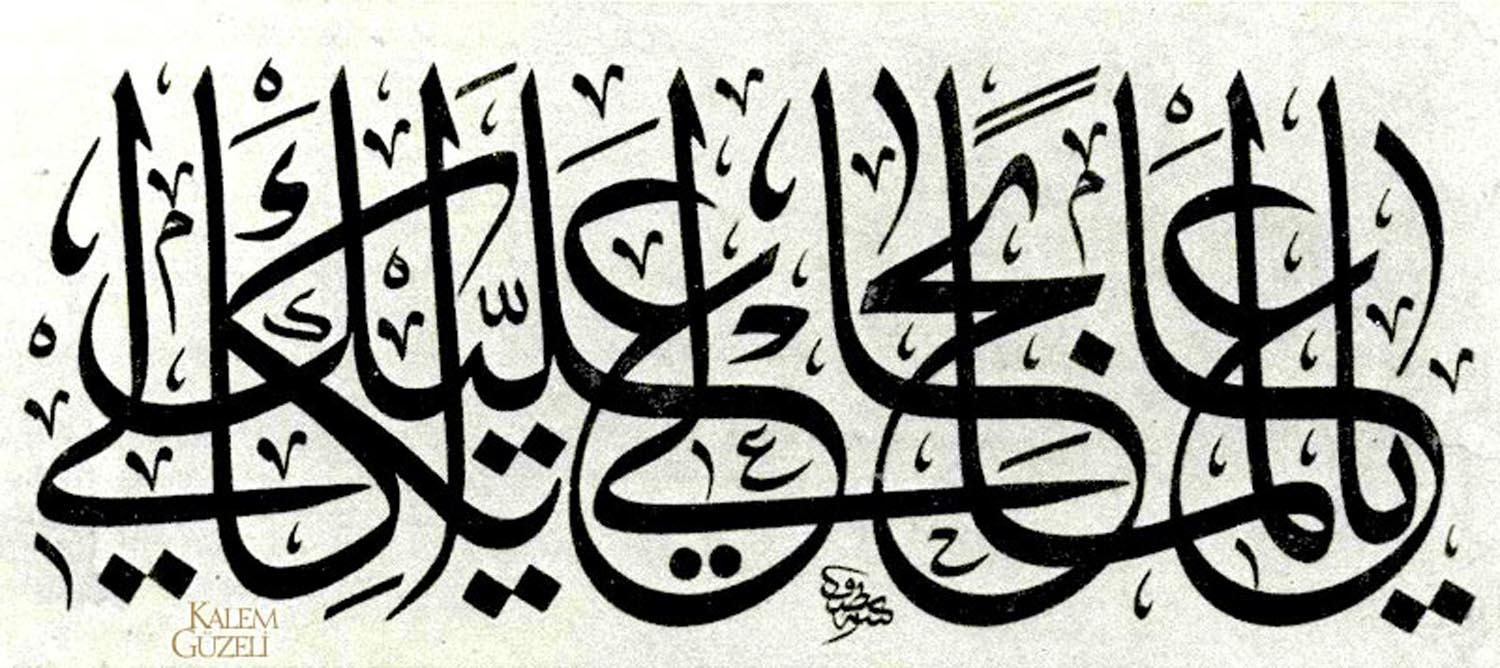 يا عالمًا بحالي عليك اتكالي
KALEM
GÜZELİ